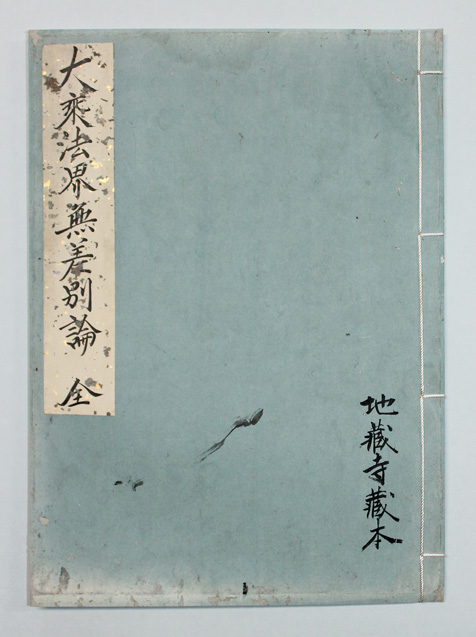 地藏寺藏本
大乘法界無差別論 全